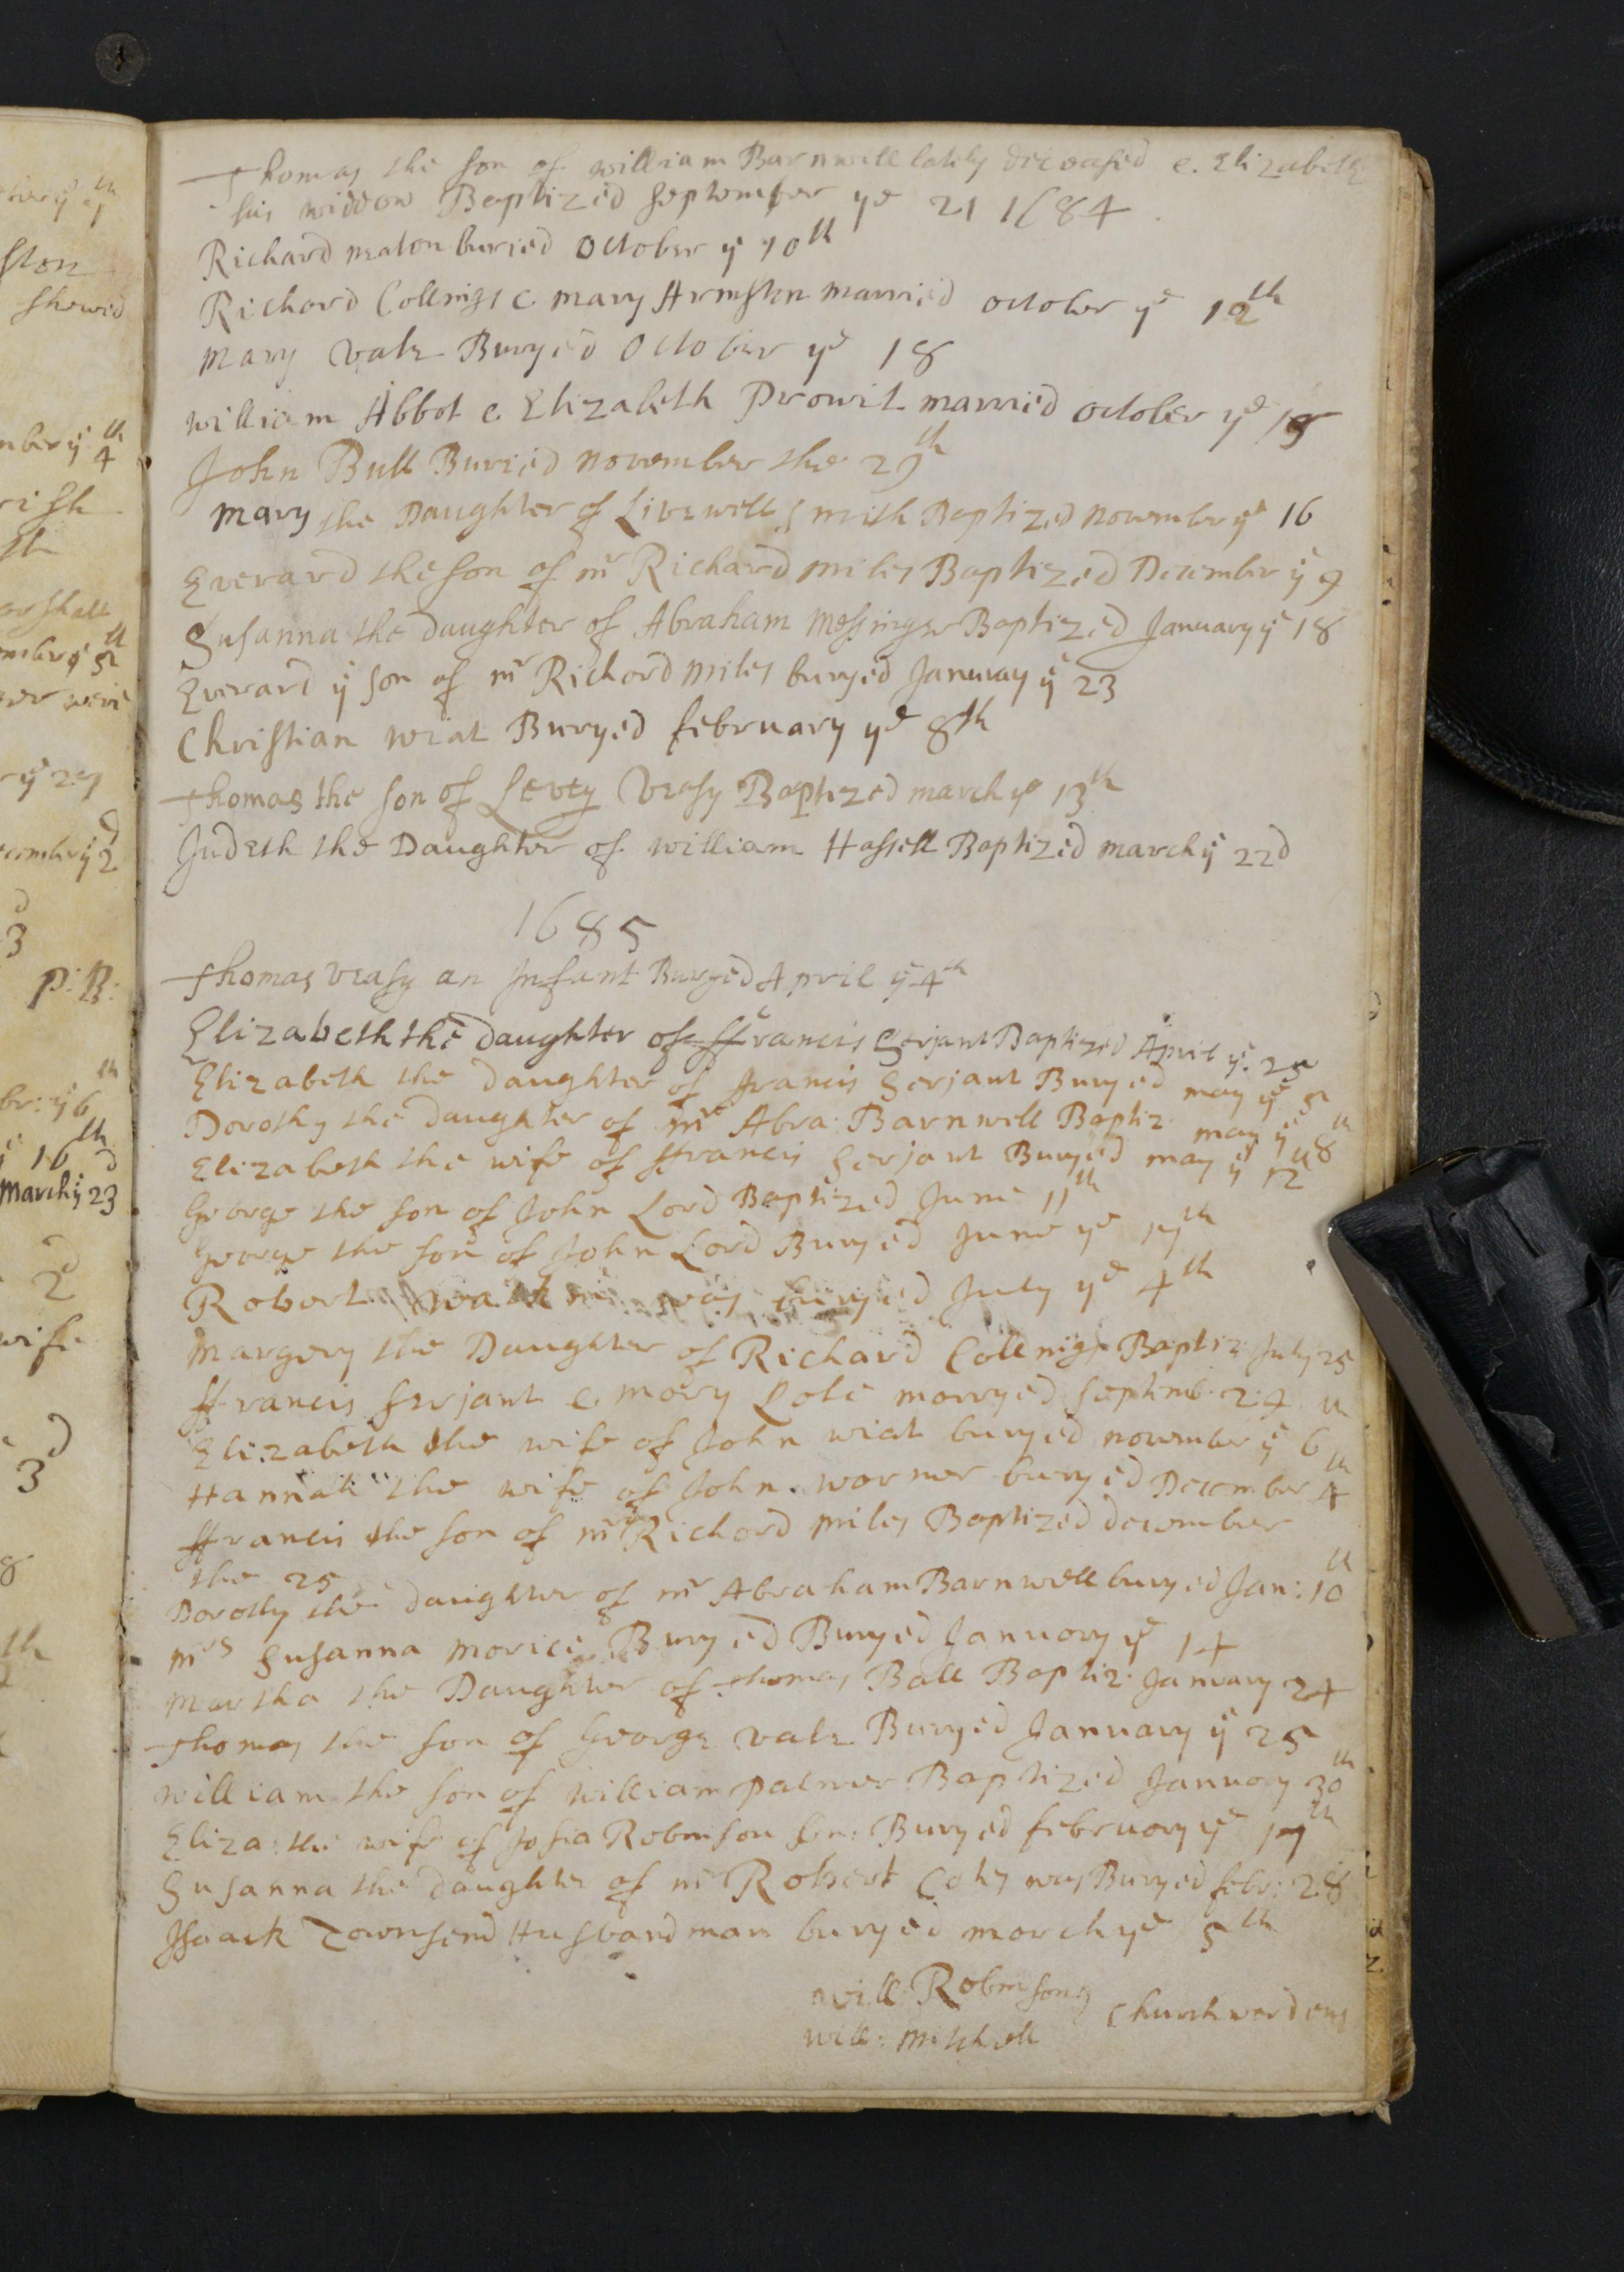 Thomas the son of william Barnwell lately deceased & Elizabeth
his widdow Baptized September ye 21 1684
Richard maton buried October ye 10th
Richard Collings & mary Armston married october ye 12th
Mary Vale Buryed October ye 18
william Abbot & Elizabeth Prowit married october ye 19
John Bull Buried november the 29th
Mary the Daughter of Livewell Smith Baptized novembr ye 16
Everard the son of mr Richard miles Baptized December ye 9
Susanna the daughter of Abraham Messinger Baptized January ye 18
Everard ye son of mr Richard Miles buryed January ye 23
Christian wiat Buryed february ye 8th
Thomas the son of Levey Veasy Baptized march ye 13th
Judeth the Daughter of william Hassell Baptized march ye 22d
1685
Thomas veasy an Infant Buryed April ye 4th
Elizabeth the daughter of ffrancis Serjant Baptized April ye 25
Elizabeth the daughter of ffrancis Serjant Buryed may ye 5
Dorothy the daughter of mr Abra: Barnwell Baptiz may ye 8th
Elizabeth the wife of ffrancis Serjant Buryed may ye 12
George the son of John Lord Baptized June 11th
George the son of John Lord Buryed June ye 17th
Robert was buryed July ye 4th
Margery the Daughter of Richard Collings Baptiz July 25
ffrancis serjant & mary Cole marryed Septemb. 24
Elizabeth the wife of John wiat buryed november ye 6th
Hannah the wife of John warner buryed December 4th
ffrancis the son of mr Richard miles Baptized december
the 25
Dorothy the daughter of mr Abraham Barnwell buryed Jan: 10th
mrs Susanna Morice Buryed Buryed January ye 14
Martha the Daughter of Thomas Ball Baptiz: January 24
Thomas the son of George vale Buryed January ye 25
william the son of william palmer Baptized January 30th
Eliza: the wife of Josia Robinson sen: Buryed february ye 17th
Susanna the daughter of mr Robert Coles was Buryed febr: 28
Isaack Townsend Husbandman buryed march ye 5th
will Robinson
Churchwardens
will: Mitchell